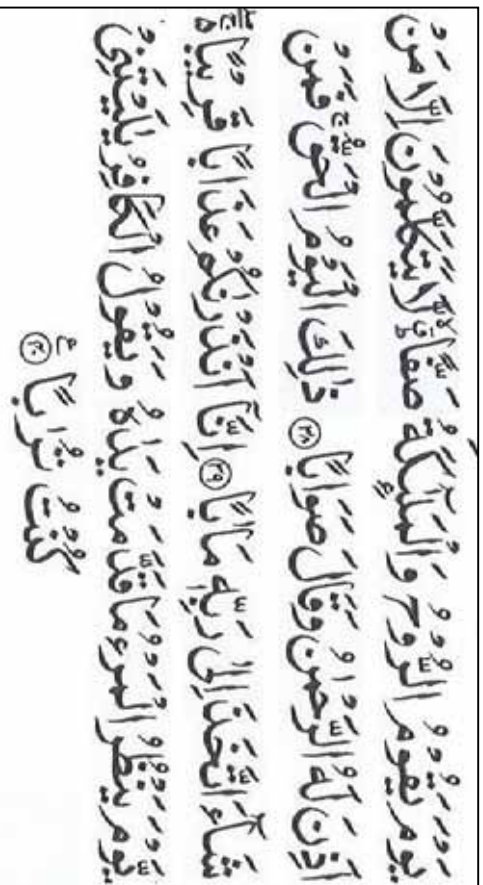 يَوْمَ يَقُوْمُ الرُّوْحُ وَالْمَلٰٓئِكَةُ صَفًّا ۙۗ لَّا يَتَكَلَّمُوْنَ اِلَّا مَنْ
اَذِنَ لَهُ الرَّحْمٰنُ وَقَالَ صَوَابًا ﴿٣٨﴾ ذٰلِكَ الْيَوْمُ الْحَقُّ ۚ فَمَنْ
شَآءَ اتَّخَذَ اِلٰى رَبِّهٖ مَاٰبًا ﴿٣٩﴾ اِنَّآ اَنْذَرْنٰكُمْ عَذَابًا قَرِيْبًا
يَّوْمَ يَنْظُرُ الْمَرْءُ مَا قَدَّمَتْ يَدٰهُ وَيَقُوْلُ الْكَافِرُ يٰلَيْتَنِيْ
كُنْتُ تُرٰبًا ﴿٤٠﴾ ع